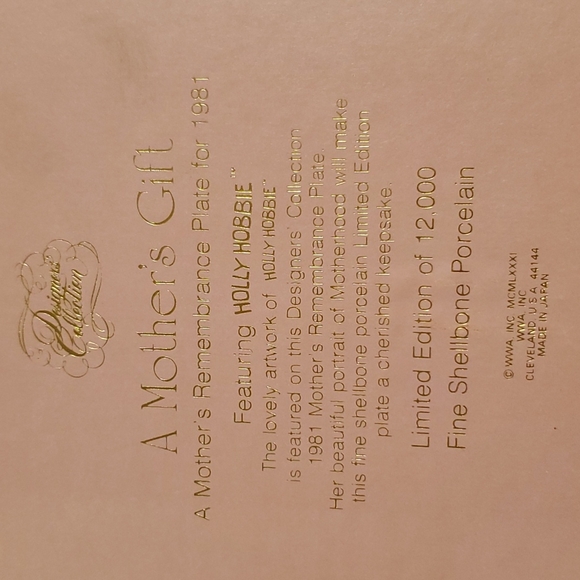 Designers'
Collection
A Mother's Gift
A Mother's Remembrance Plate for 1981
Featuring HOLLY HOBBIE™
The lovely artwork of HOLLY HOBBIE™
is featured on this Designers' Collection
1981 Mother's Remembrance Plate
Her beautiful portrait of Motherhood will make
this fine shellbone porcelain Limited Edition
plate a cherished keepsake.
Limited Edition of 12,000
Fine Shellbone Porcelain
© WWA, INC. MCMLXXXI
WWA, INC.
CLEVELAND, U.S.A. 44144
MADE IN JAPAN